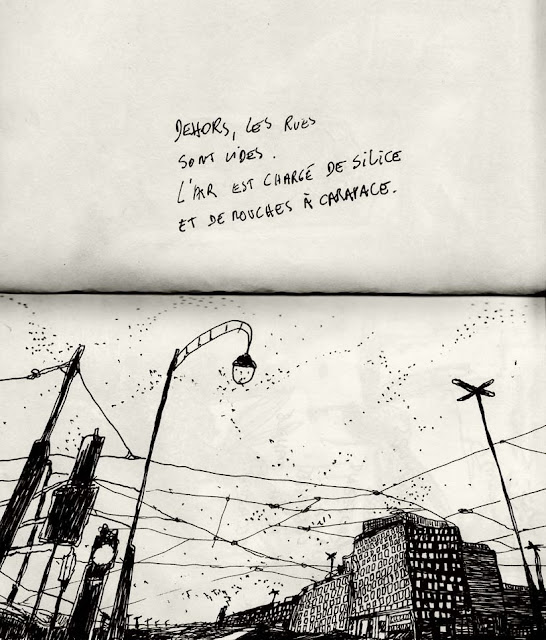 DEHORS, LES RUES
SONT VIDES.
L'AIR EST CHARGÉ DE SILICE
ET DE MOUCHES À CARAPACE.